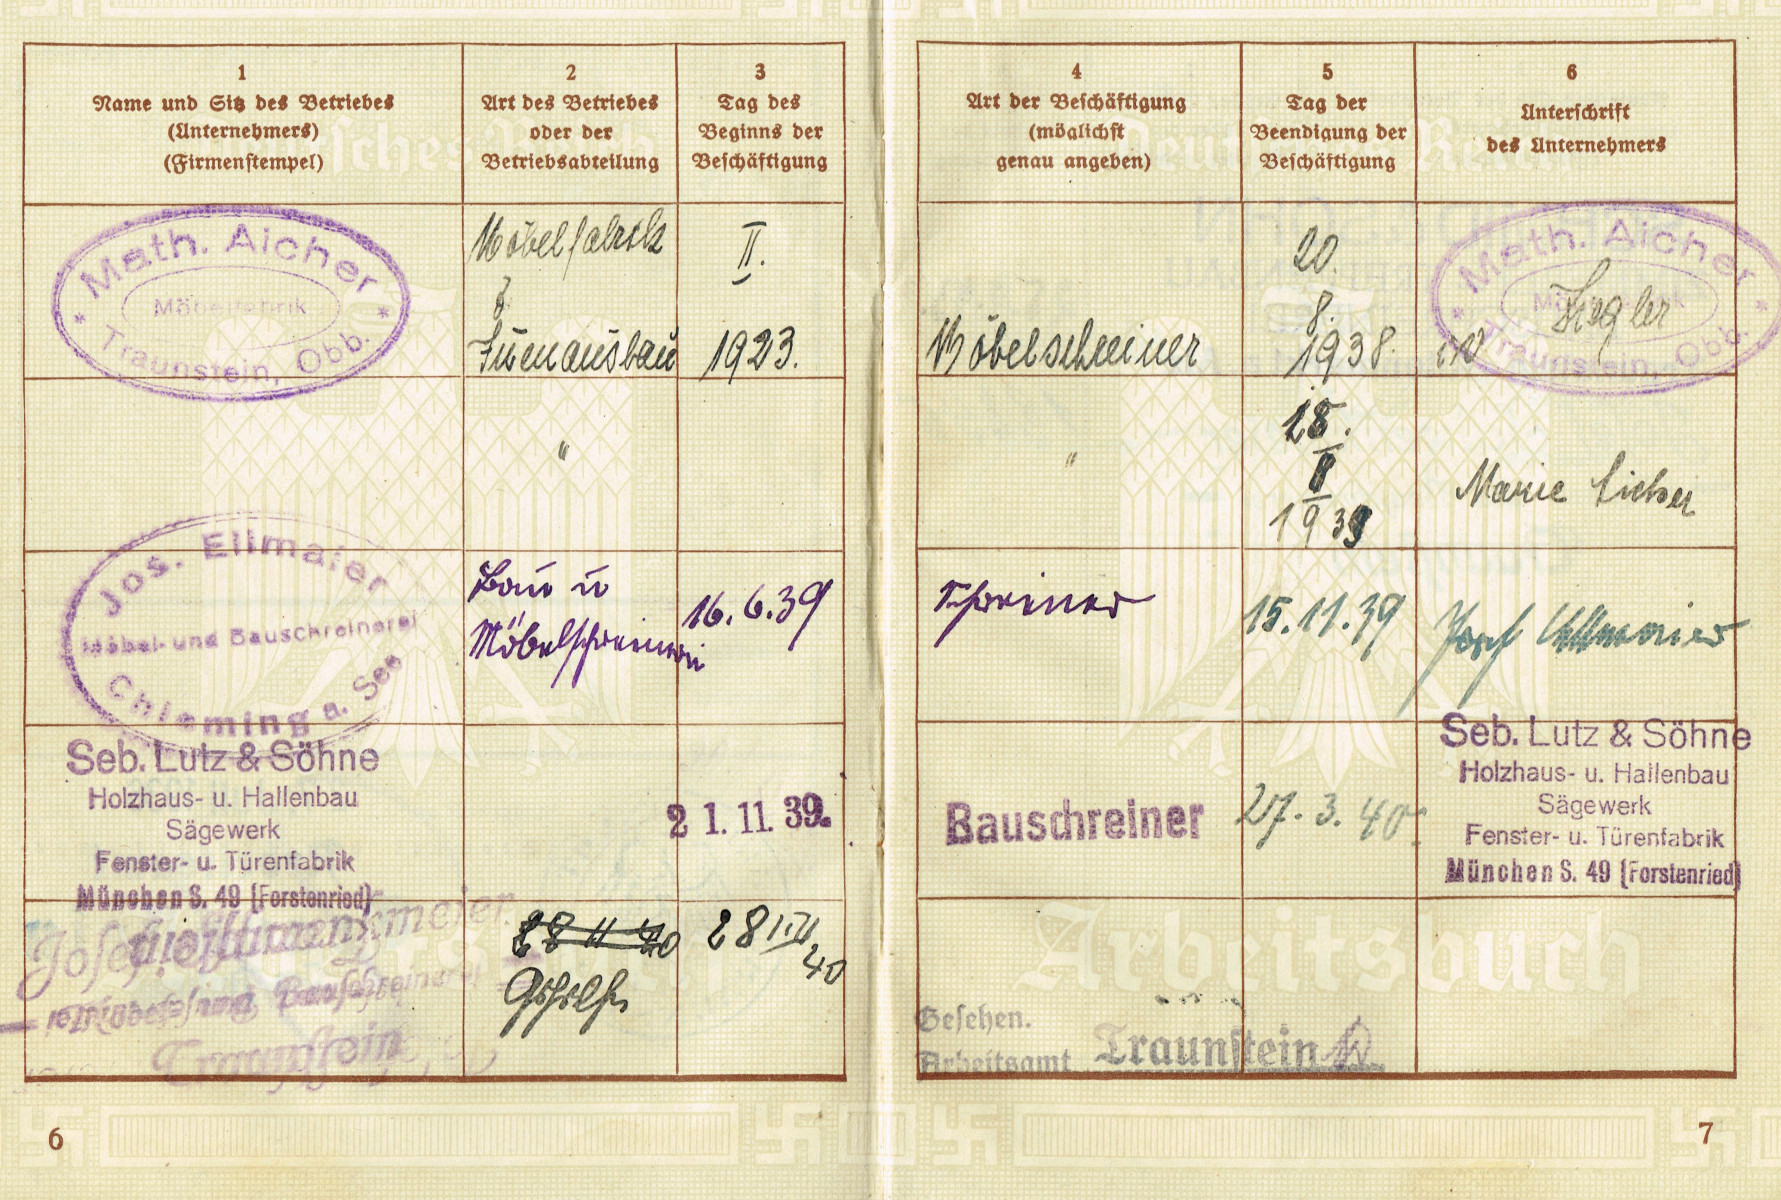 1
Name und Sitz des Betriebes
(Unternehmers)
(Firmenstempel)
2
Art des Betriebes
oder der
Betriebsabteilung
3
Tag des
Beginns der
Beschäftigung
4
Art der Beschäftigung
(möglichst
genau angeben)
5
Tag der
Beendigung der
Beschäftigung
6
Unterschrift
des Unternehmers
Math. Aicher
Möbelfabrik
Traunstein, Obb.
Möbelfabrik
&
Innenausbau
II.
1923.
Möbelschreiner
20.
8.
1938.
Math. Aicher
Ziegler
Traunstein, Obb.
"
"
18.
II
1939
Marie Aicher
Jos. Ellmaier
Möbel- und Bauschreinerei
Chieming a. See
Bau u
Möbelschreinerei
16.6.39
Schreiner
15.11.39
Josef Ellmaier
Seb. Lutz & Söhne
Holzhaus- u. Hallenbau
Sägewerk
Fenster- u. Türenfabrik
München S. 49 (Forstenried)
21.11.39.
Bauschreiner
27.3.40
Seb. Lutz & Söhne
Holzhaus- u. Hallenbau
Sägewerk
Fenster- u. Türenfabrik
München S. 49 (Forstenried)
Josef
Bauschreinerei
Traunstein
28 II 40
28 III
40
Arbeitsbuch
Gesehen.
Arbeitsamt Traunstein
6
7